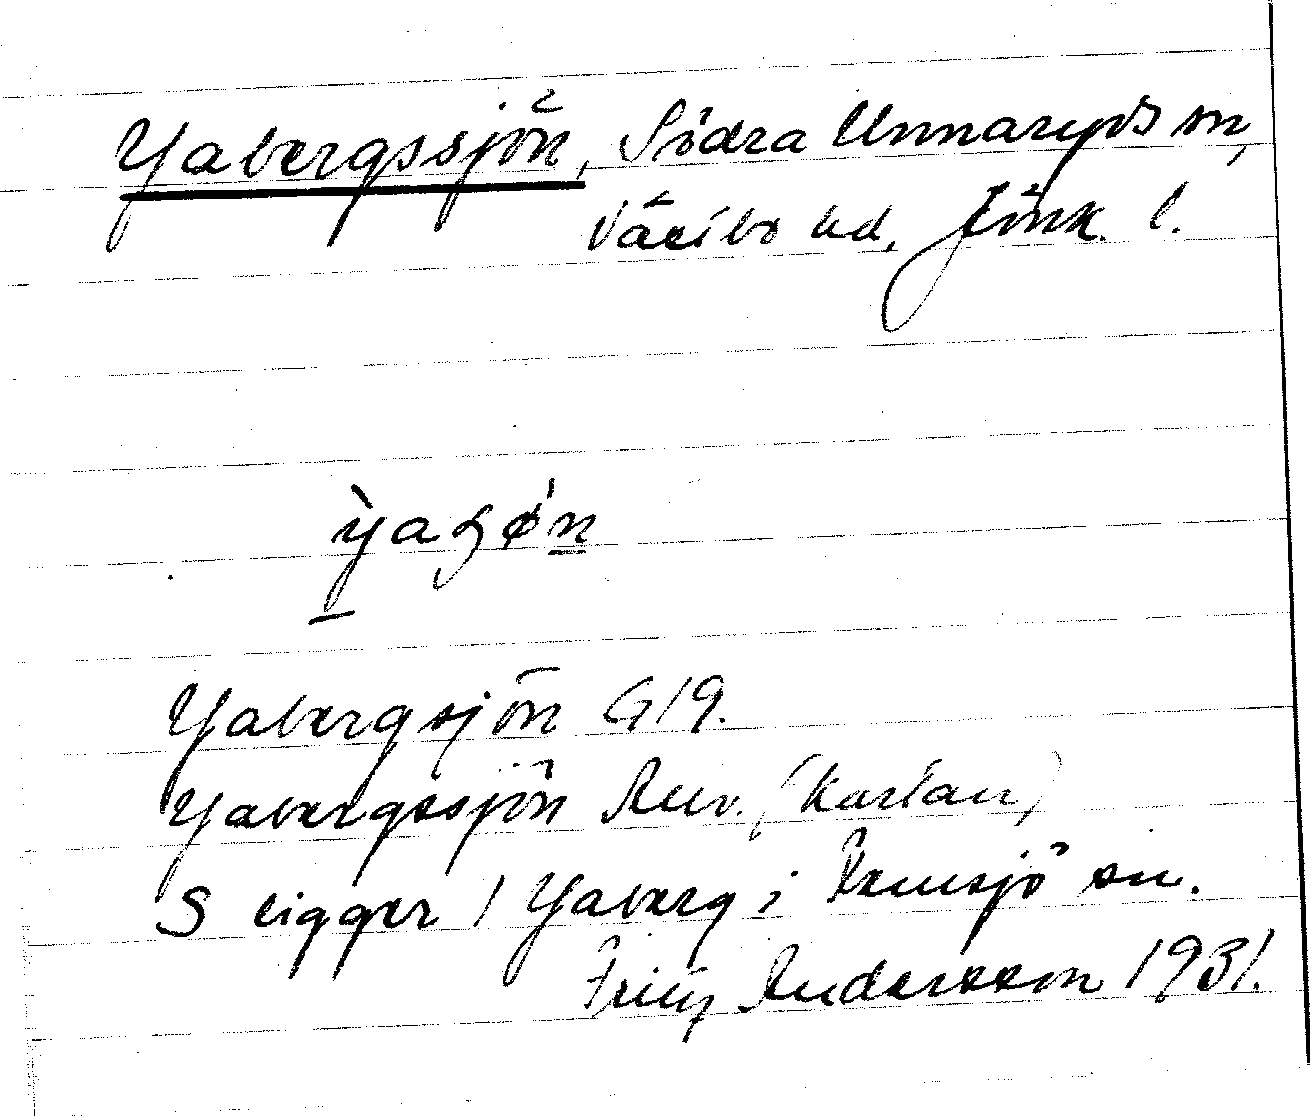 Yabergssjön, Södra Unnaryds sn,
Västbo hd, Jönk. l.
Yabergsjön G19.
Yabergssjön Rev. (kartan)
S ligger / Yaberg i Femsjö sn.
Fritz Andersson 1931.